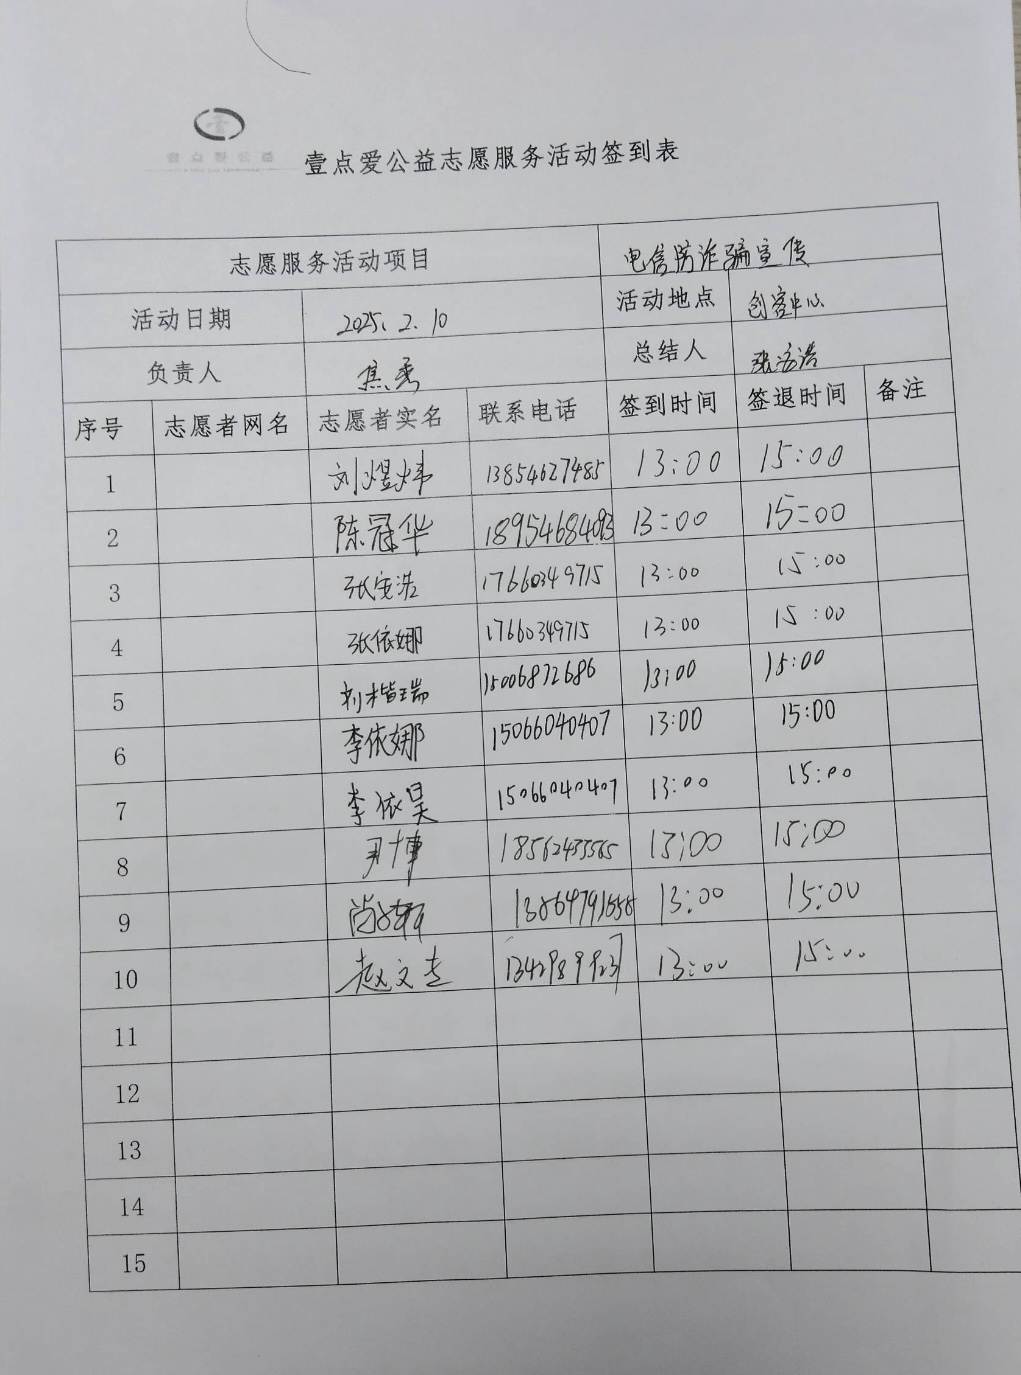 壹点爱公益
壹点爱公益志愿服务活动签到表
志愿服务活动项目 电信防诈骗宣传
活动日期 2025.2.10 活动地点 创客中心
负责人 焦秀 总结人 张安浩
序号 志愿者网名 志愿者实名 联系电话 签到时间 签退时间 备注
1 刘煜炜 13854627485 13:00 15:00
2 陈冠华 18954684093 13:00 15:00
3 张安浩 17660349715 13:00 15:00
4 张依娜 17660349715 13:00 15:00
5 刘楷瑞 15006872686 13:00 15:00
6 李依娜 15066040407 13:00 15:00
7 李依昊 15066040407 13:00 15:00
8 尹博 18562433565 13:00 15:00
9 13:00 15:00
10 赵文志 13:00 15:00
11
12
13
14
15